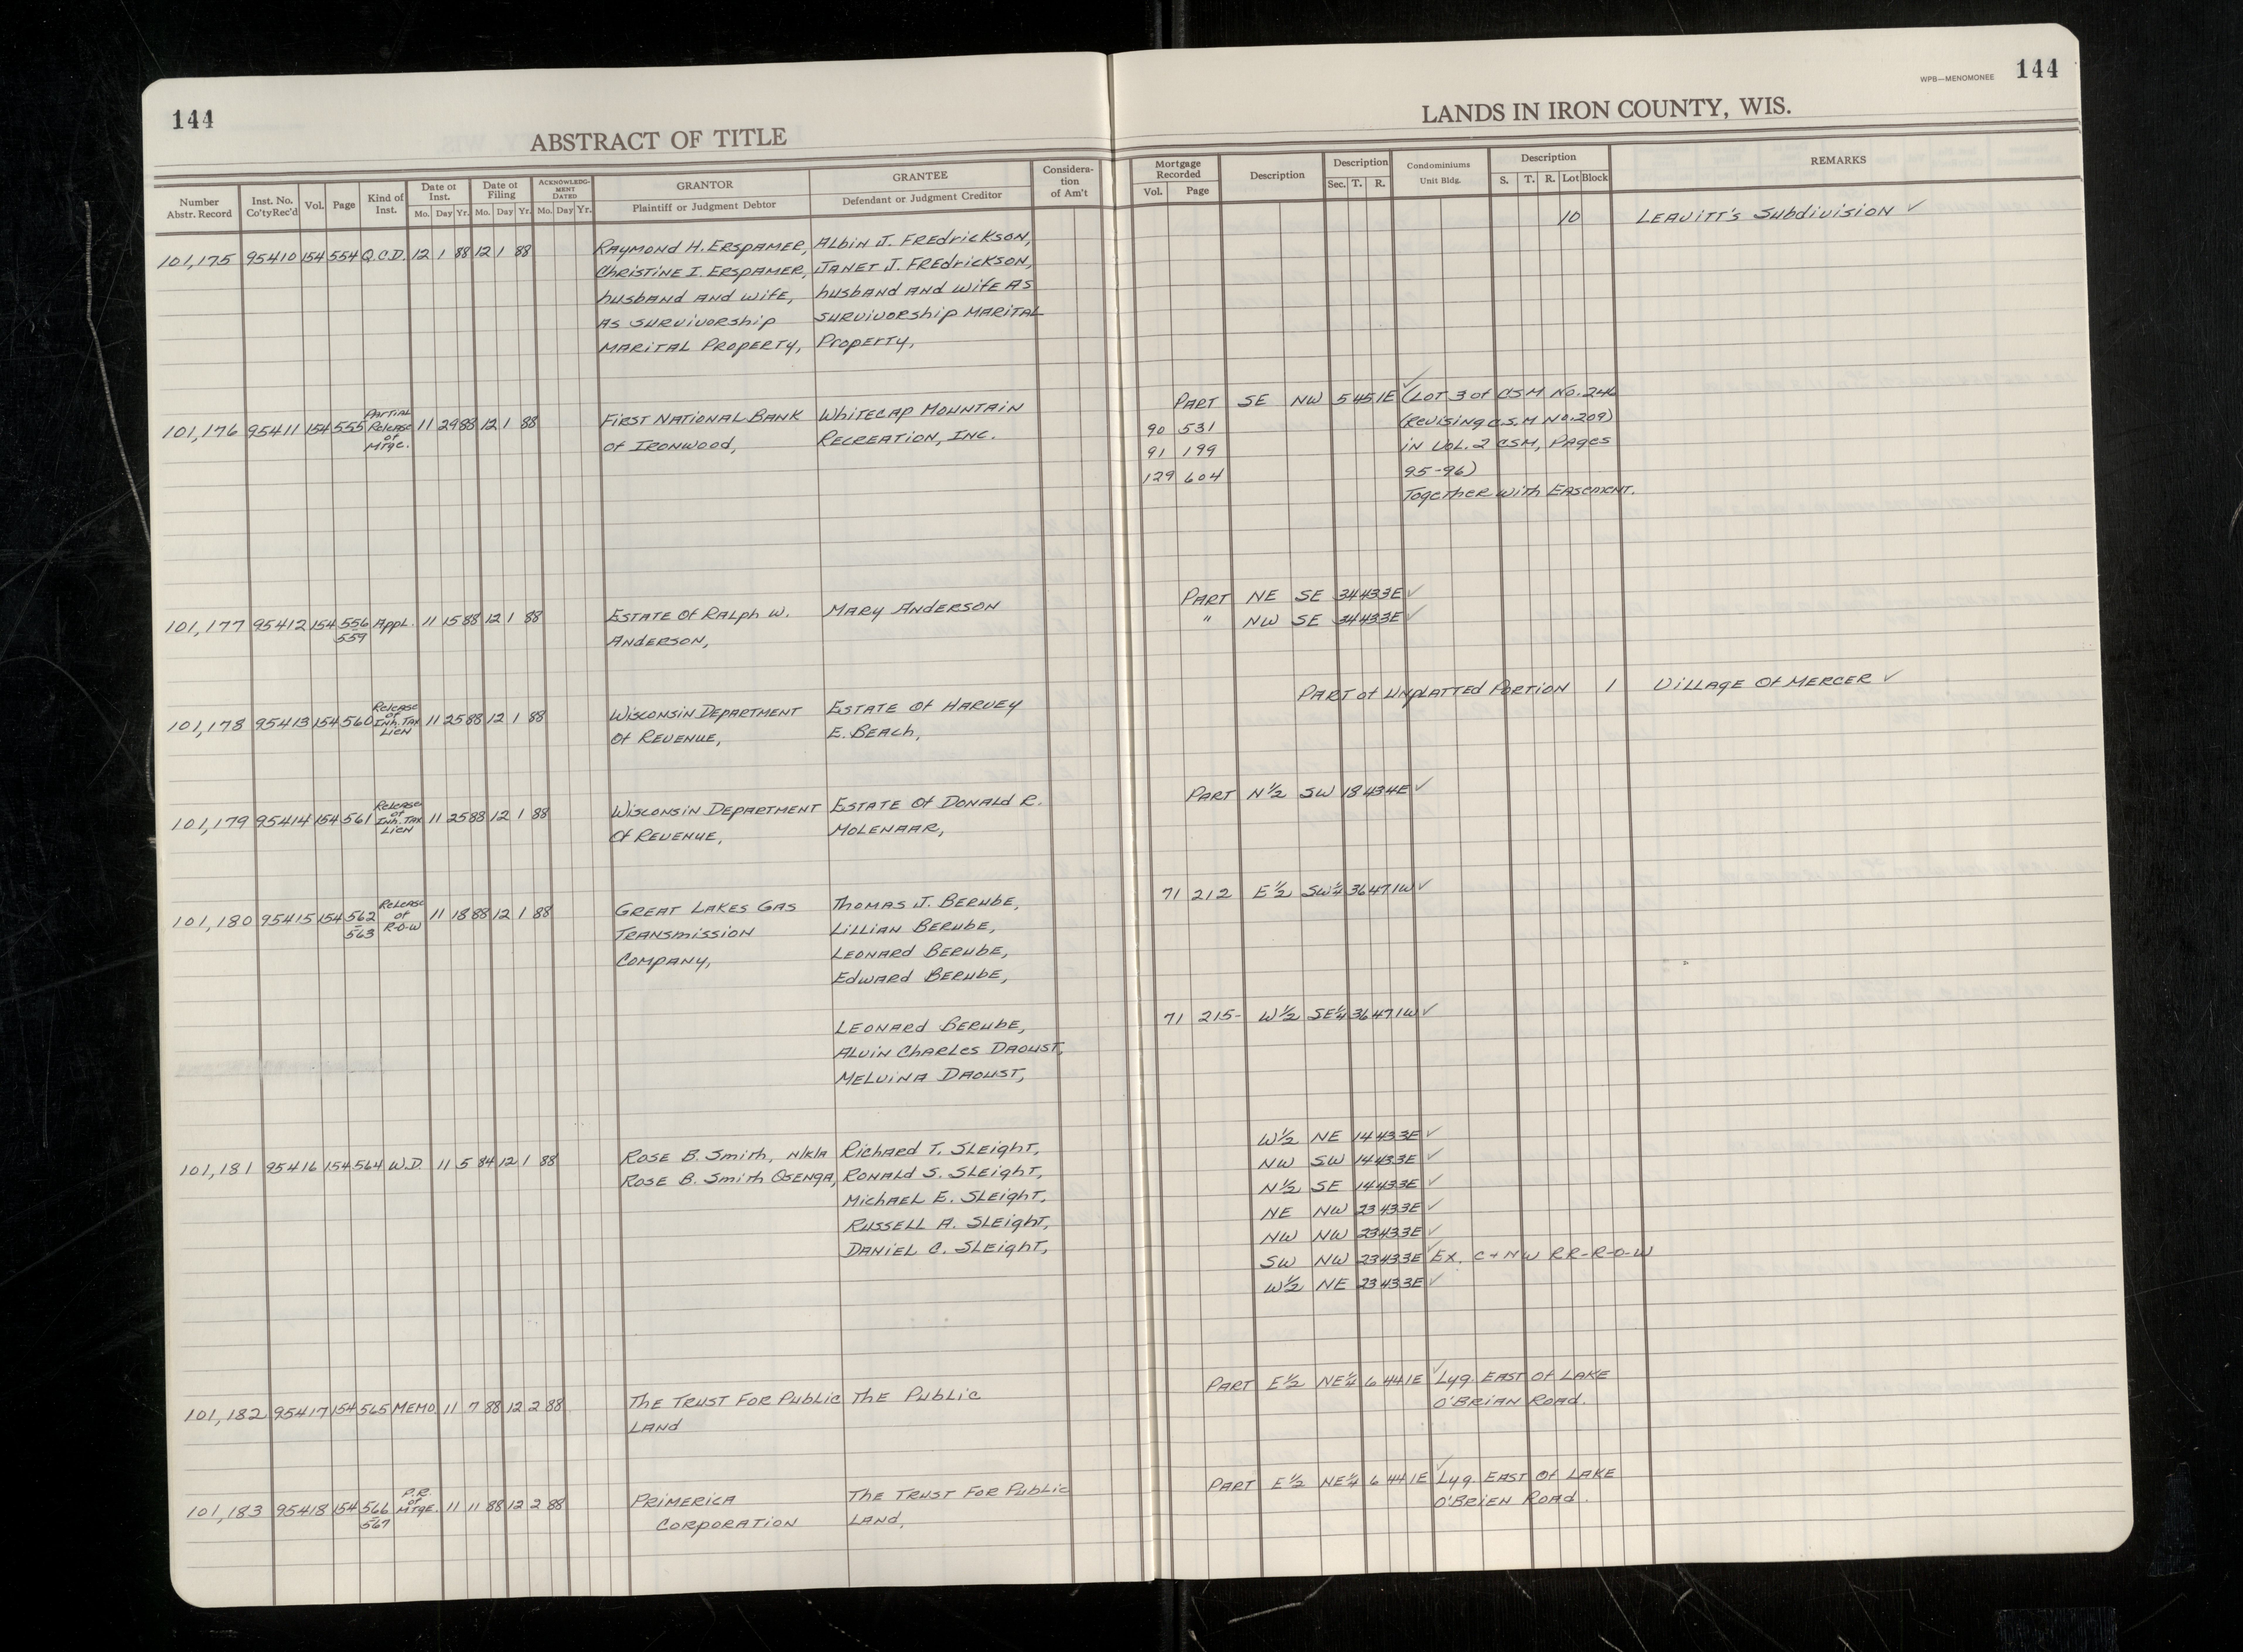 144
ABSTRACT OF TITLE
LANDS IN IRON COUNTY, WIS.
WPB—MENOMONEE 144
Number Abstr. Record | Inst. No. Co'ty Rec'd | Vol. | Page | Kind of Inst. | Date of Inst. Mo. Day Yr. | Date of Filing Mo. Day Yr. | ACKNOWLEDGMENT DATED Mo. Day Yr. | GRANTOR Plaintiff or Judgment Debtor | GRANTEE Defendant or Judgment Creditor | Consideration of Am't | Mortgage Recorded Vol. Page | Description | Description Sec. T. R. | Condominiums Unit Bldg. | Description S. T. R. Lot Block | REMARKS
101,175 95410 154 554 Q.C.D. 12 1 88 12 1 88 Raymond H. Erspamer, Albin J. Fredrickson, 10 Leavitt's Subdivision ✓
Christine I. Erspamer, Janet J. Fredrickson,
husband and wife, husband and wife as
as survivorship survivorship marital
marital property, Property,
101,176 95411 154 555 Partial Release of Mtge. 11 29 88 12 1 88 First National Bank Whitecap Mountain Part SE NW 5 45 1E ✓ (Lot 3 of CSM No. 246
of Ironwood, Recreation, Inc. 90 531 (Revising C.S.M No. 209)
91 199 in Vol. 2 CSM, Pages
129 604 95-96)
Together with Easement.
101,177 95412 154 556 559 Appl. 11 15 88 12 1 88 Estate of Ralph W. Mary Anderson Part NE SE 34 43 3E ✓
Anderson, " NW SE 34 43 3E ✓
101,178 95413 154 560 Release of Inh. Tax Lien 11 25 88 12 1 88 Wisconsin Department Estate of Harvey Part of Unplatted Portion 1 Village of Mercer ✓
of Revenue, E. Beach,
101,179 95414 154 561 Release of Inh. Tax Lien 11 25 88 12 1 88 Wisconsin Department Estate of Donald R. Part N½ SW 18 43 4E ✓
of Revenue, Molenaar,
101,180 95415 154 562 = 563 Release of R-O-W 11 18 88 12 1 88 Great Lakes Gas Thomas J. Berube, 71 212 E½ SW¼ 36 47 1W ✓
Transmission Lillian Berube,
Company, Leonard Berube,
Edward Berube,
Leonard Berube, 71 215- W½ SE¼ 36 47 1W ✓
Alvin Charles Daoust,
Melvina Daoust,
101,181 95416 154 564 W.D. 11 5 84 12 1 88 Rose B. Smith, n/k/a Richard T. Sleight, W½ NE 14 43 3E ✓
Rose B. Smith Osenga, Ronald S. Sleight, NW SW 14 43 3E ✓
Michael E. Sleight, N½ SE 14 43 3E ✓
Russell A. Sleight, NE NW 23 43 3E ✓
Daniel C. Sleight, NW NW 23 43 3E ✓
SW NW 23 43 3E ✓ Ex. C+NW RR-R-O-W
W½ NE 23 43 3E ✓
101,182 95417 154 565 Memo 11 7 88 12 2 88 The Trust For Public The Public Part E½ NE¼ 6 44 1E ✓ Lyg. East of Lake
Land O'Brian Road.
101,183 95418 154 566 = 567 P.R. of Mtge. 11 11 88 12 2 88 Primerica The Trust For Public Part E½ NE¼ 6 44 1E ✓ Lyg. East of Lake
Corporation Land, O'Brien Road.